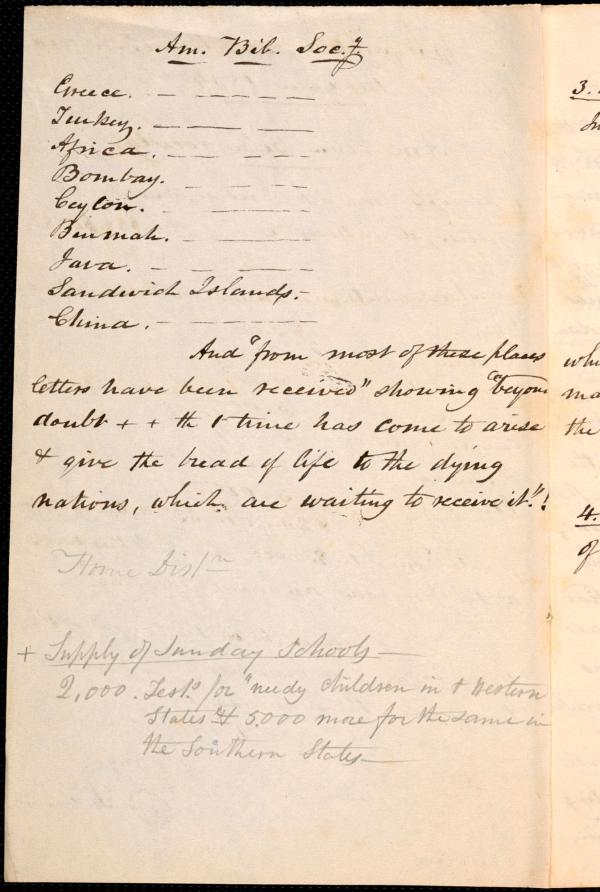 Am. Bib. Soc.y
Greece. — — — —
Turkey. — — —
Africa. — — — —
Bombay. — — —
Ceylon. — — —
Burmah. — — —
Java. — — —
Sandwich Islands. —
China. — — —
And "from most of these places
letters have been received" showing "beyond
doubt + + th t time has come to arise
& give the bread of life to the dying
nations, which are waiting to receive it."!
Home Dis/n
+ Supply of Sunday Schools —
2,000. Test.s for "needy children in t Western
States & 5.000 more for the same in
the Southern States —
3.
whi
ma
the
4.
of